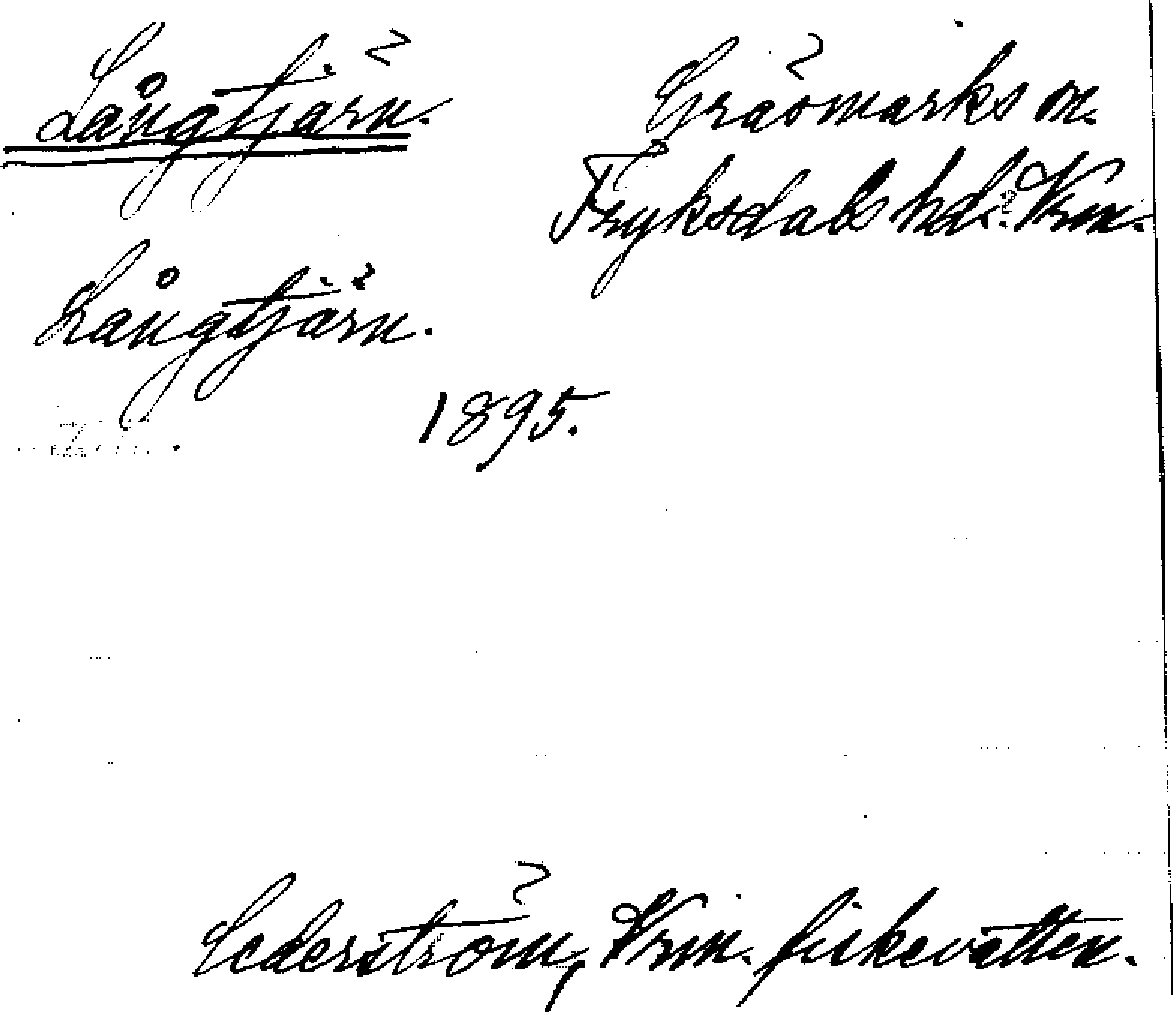 Långtjärn.
Gräsmarks sn.
Fryksdals hd. Vrm.
Långtjärn.
1895.
Cederström, Vrm. fiskevatten.